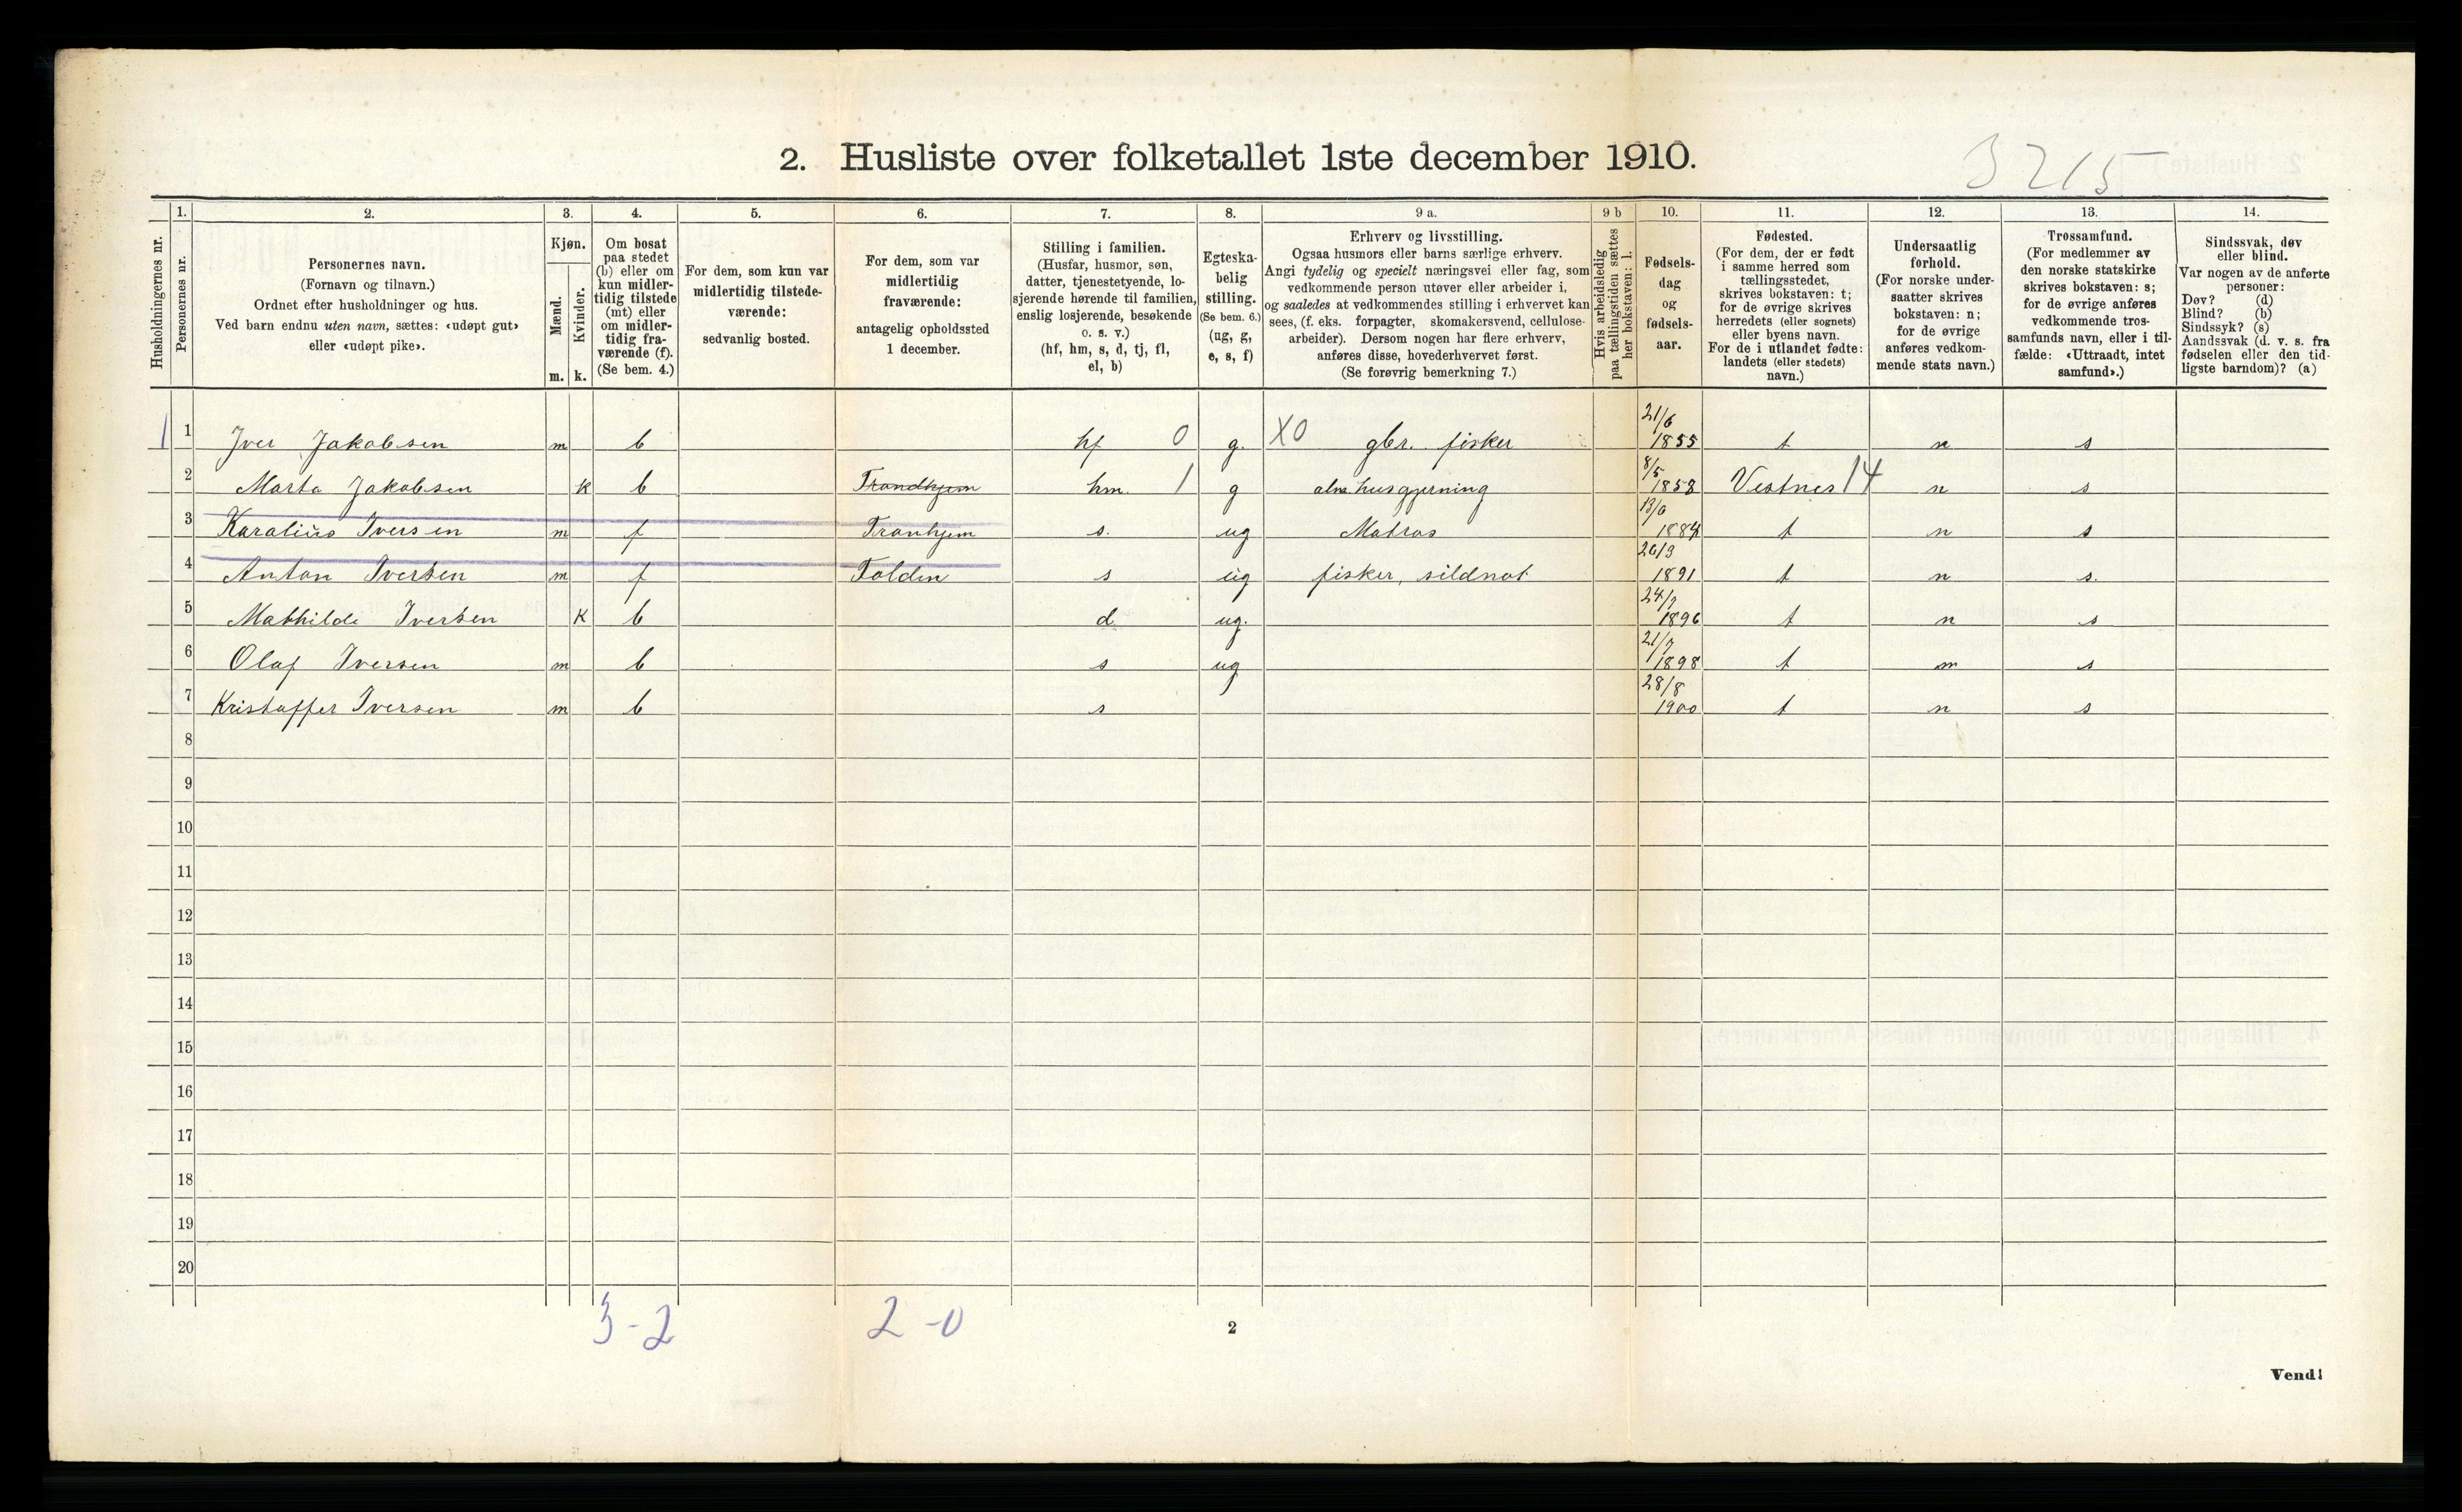 2. Husliste over folketallet 1ste december 1910.
3215
Husholdningernes nr.
1. Personernes nr.
2. Personernes navn.
(Fornavn og tilnavn.)
Ordnet efter husholdninger og hus.
Ved barn endnu uten navn, sættes: «udøpt gut»
eller «udøpt pike».
3. Kjøn.
Mænd. m.
Kvinder. k.
4. Om bosat
paa stedet
(b) eller om
kun midler-
tidig tilstede
(mt) eller
om midler-
tidig fra-
værende (f).
(Se bem. 4.)
5. For dem, som kun var
midlertidig tilstede-
værende:
sedvanlig bosted.
6. For dem, som var
midlertidig
fraværende:
antagelig opholdssted
1 december.
7. Stilling i familien.
(Husfar, husmor, søn,
datter, tjenestetyende, lo-
sjerende hørende til familien,
enslig losjerende, besøkende
o. s. v.)
(hf, hm, s, d, tj, fl,
el, b)
8. Egteska-
belig
stilling.
(Se bem. 6.)
(ug, g,
e, s, f)
9 a. Erhverv og livsstilling.
Ogsaa husmors eller barns særlige erhverv.
Angi tydelig og specielt næringsvei eller fag, som
vedkommende person utøver eller arbeider i,
og saaledes at vedkommendes stilling i erhvervet kan
sees, (f. eks. forpagter, skomakersvend, cellulose-
arbeider). Dersom nogen har flere erhverv,
anføres disse, hovederhvervet først.
(Se forøvrig bemerkning 7.)
9 b Hvis arbeidsledig
paa tællingstiden sættes
her bokstaven: l.
10. Fødsels-
dag
og
fødsels-
aar.
11. Fødested.
(For dem, der er født
i samme herred som
tællingsstedet,
skrives bokstaven: t;
for de øvrige skrives
herredets (eller sognets)
eller byens navn.
For de i utlandet fødte:
landets (eller stedets)
navn.)
12. Undersaatlig
forhold.
(For norske under-
saatter skrives
bokstaven: n;
for de øvrige
anføres vedkom-
mende stats navn.)
13. Trossamfund.
(For medlemmer av
den norske statskirke
skrives bokstaven: s;
for de øvrige anføres
vedkommende tros-
samfunds navn, eller i til-
fælde: «Uttraadt, intet
samfund».)
14. Sindssvak, døv
eller blind.
Var nogen av de anførte
personer:
Døv? (d)
Blind? (b)
Sindssyk? (s)
Aandssvak (d. v. s. fra
fødselen eller den tid-
ligste barndom)? (a)
1 1 Iver Jakobsen m b hf 0 g. X0 gbr. fisker 21/6 1855 t n s
2 Marta Jakobsen k b Trondhjem hm. 1 g husgjerning 8/5 1858 Vestnes 14 n s
3 Karolius Iversen m f Tronhjem s. ug Matros 13/6 1884 t n s
4 Anton Iversen m f Folden s ug fisker, sildnot 26/9 1891 t n s.
5 Mathilde Iversen k b d ug. 24/7 1896 t n s
6 Olaf Iversen m b s ug 21/7 1898 t m s
7 Kristoffer Iversen m b s 28/8 1900 t n s
8
9
10
11
12
13
14
15
16
17
18
19
20
3-2 2-0
2
Vend!